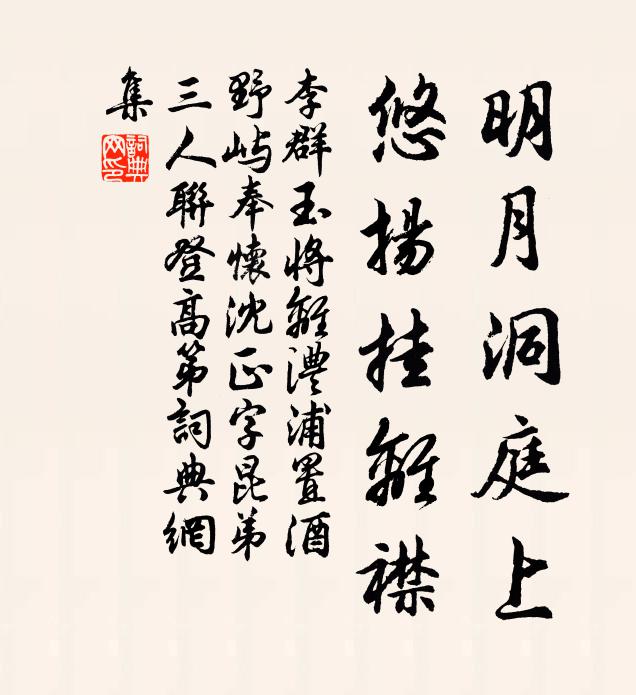 明月洞庭上
悠揚挂離襟
李群玉將離澧浦置酒
野嶼奉懷沈正字昆弟
三人聯登高第詞典網
集
詞典網印